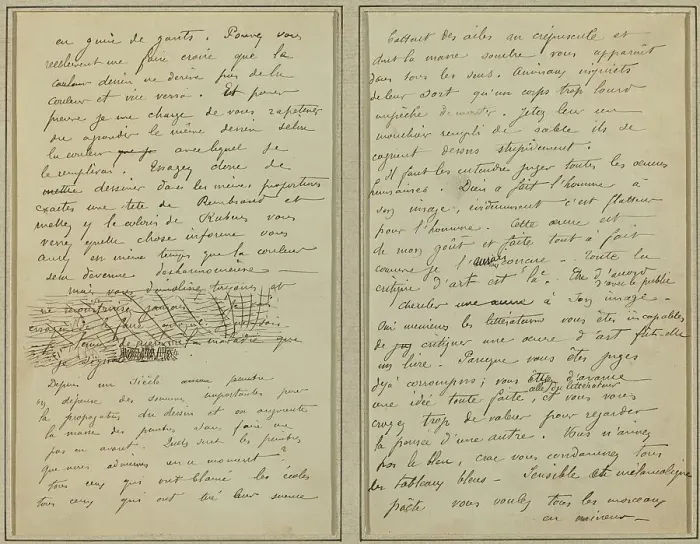 en guise de gants. Pouvez vous
réellement me faire croire que la
couleur dessin ne dérive pas de la
couleur et vice versa. Et pour
preuve je me charge de vous rapetisser
ou agrandir le même dessin selon
la couleur avec lequel je
le remplirai. Essayez donc de
mettre dessiner dans les mêmes proportions
exactes une tête de Rembrand et
mettez y le coloris de Rubens vous
verrez quelle chose informe vous
aurez en même temps que la couleur
sera devenue desharmonieuse
mais vous
je
je signale
Depuis un Siècle on
on dépense des sommes importantes pour
la propagation du dessin et on augmente
la masse des peintres sans faire un
pas en avant. Quels sont les peintres
que nous admirons en ce moment?
tous ceux qui ont blamé les écoles
tous ceux qui ont tiré leur science
battant des ailes au crépuscule et
dont la masse sombre vous apparait
dans tous les sens. Animaux inquiets
de leur sort qu'un corps trop lourd
empêche de monter. Jetez leur un
mouchoir rempli de sable ils se
cognent dessus stupidement.
Il faut les entendre juger toutes les œuvres
humaines. Dieu a fait l'homme à
son image, évidemment c'est flatteur
pour l'homme. Cette œuvre est
de mon goût et faite tout à fait
comme je l'aurais conçue - Toute la
critique d'art est là. Etre d'accord
avec le public
chercher une œuvre à son image -
Oui messieurs les littérateurs vous êtes incapables
de critiquer une œuvre d'art fut-elle
un livre. Parceque vous êtes juges
déjà corrompus; vous avez d'avance
une idée toute faite, celle du littérateur
et vous vous
croyez trop de valeur pour regarder
la pensée d'une autre. Vous n'aimez
pas le bleu, car vous condamnez tous
les tableaux bleus - Sensible et mélancolique
poëte vous voulez tous les morceaux
en mineur -